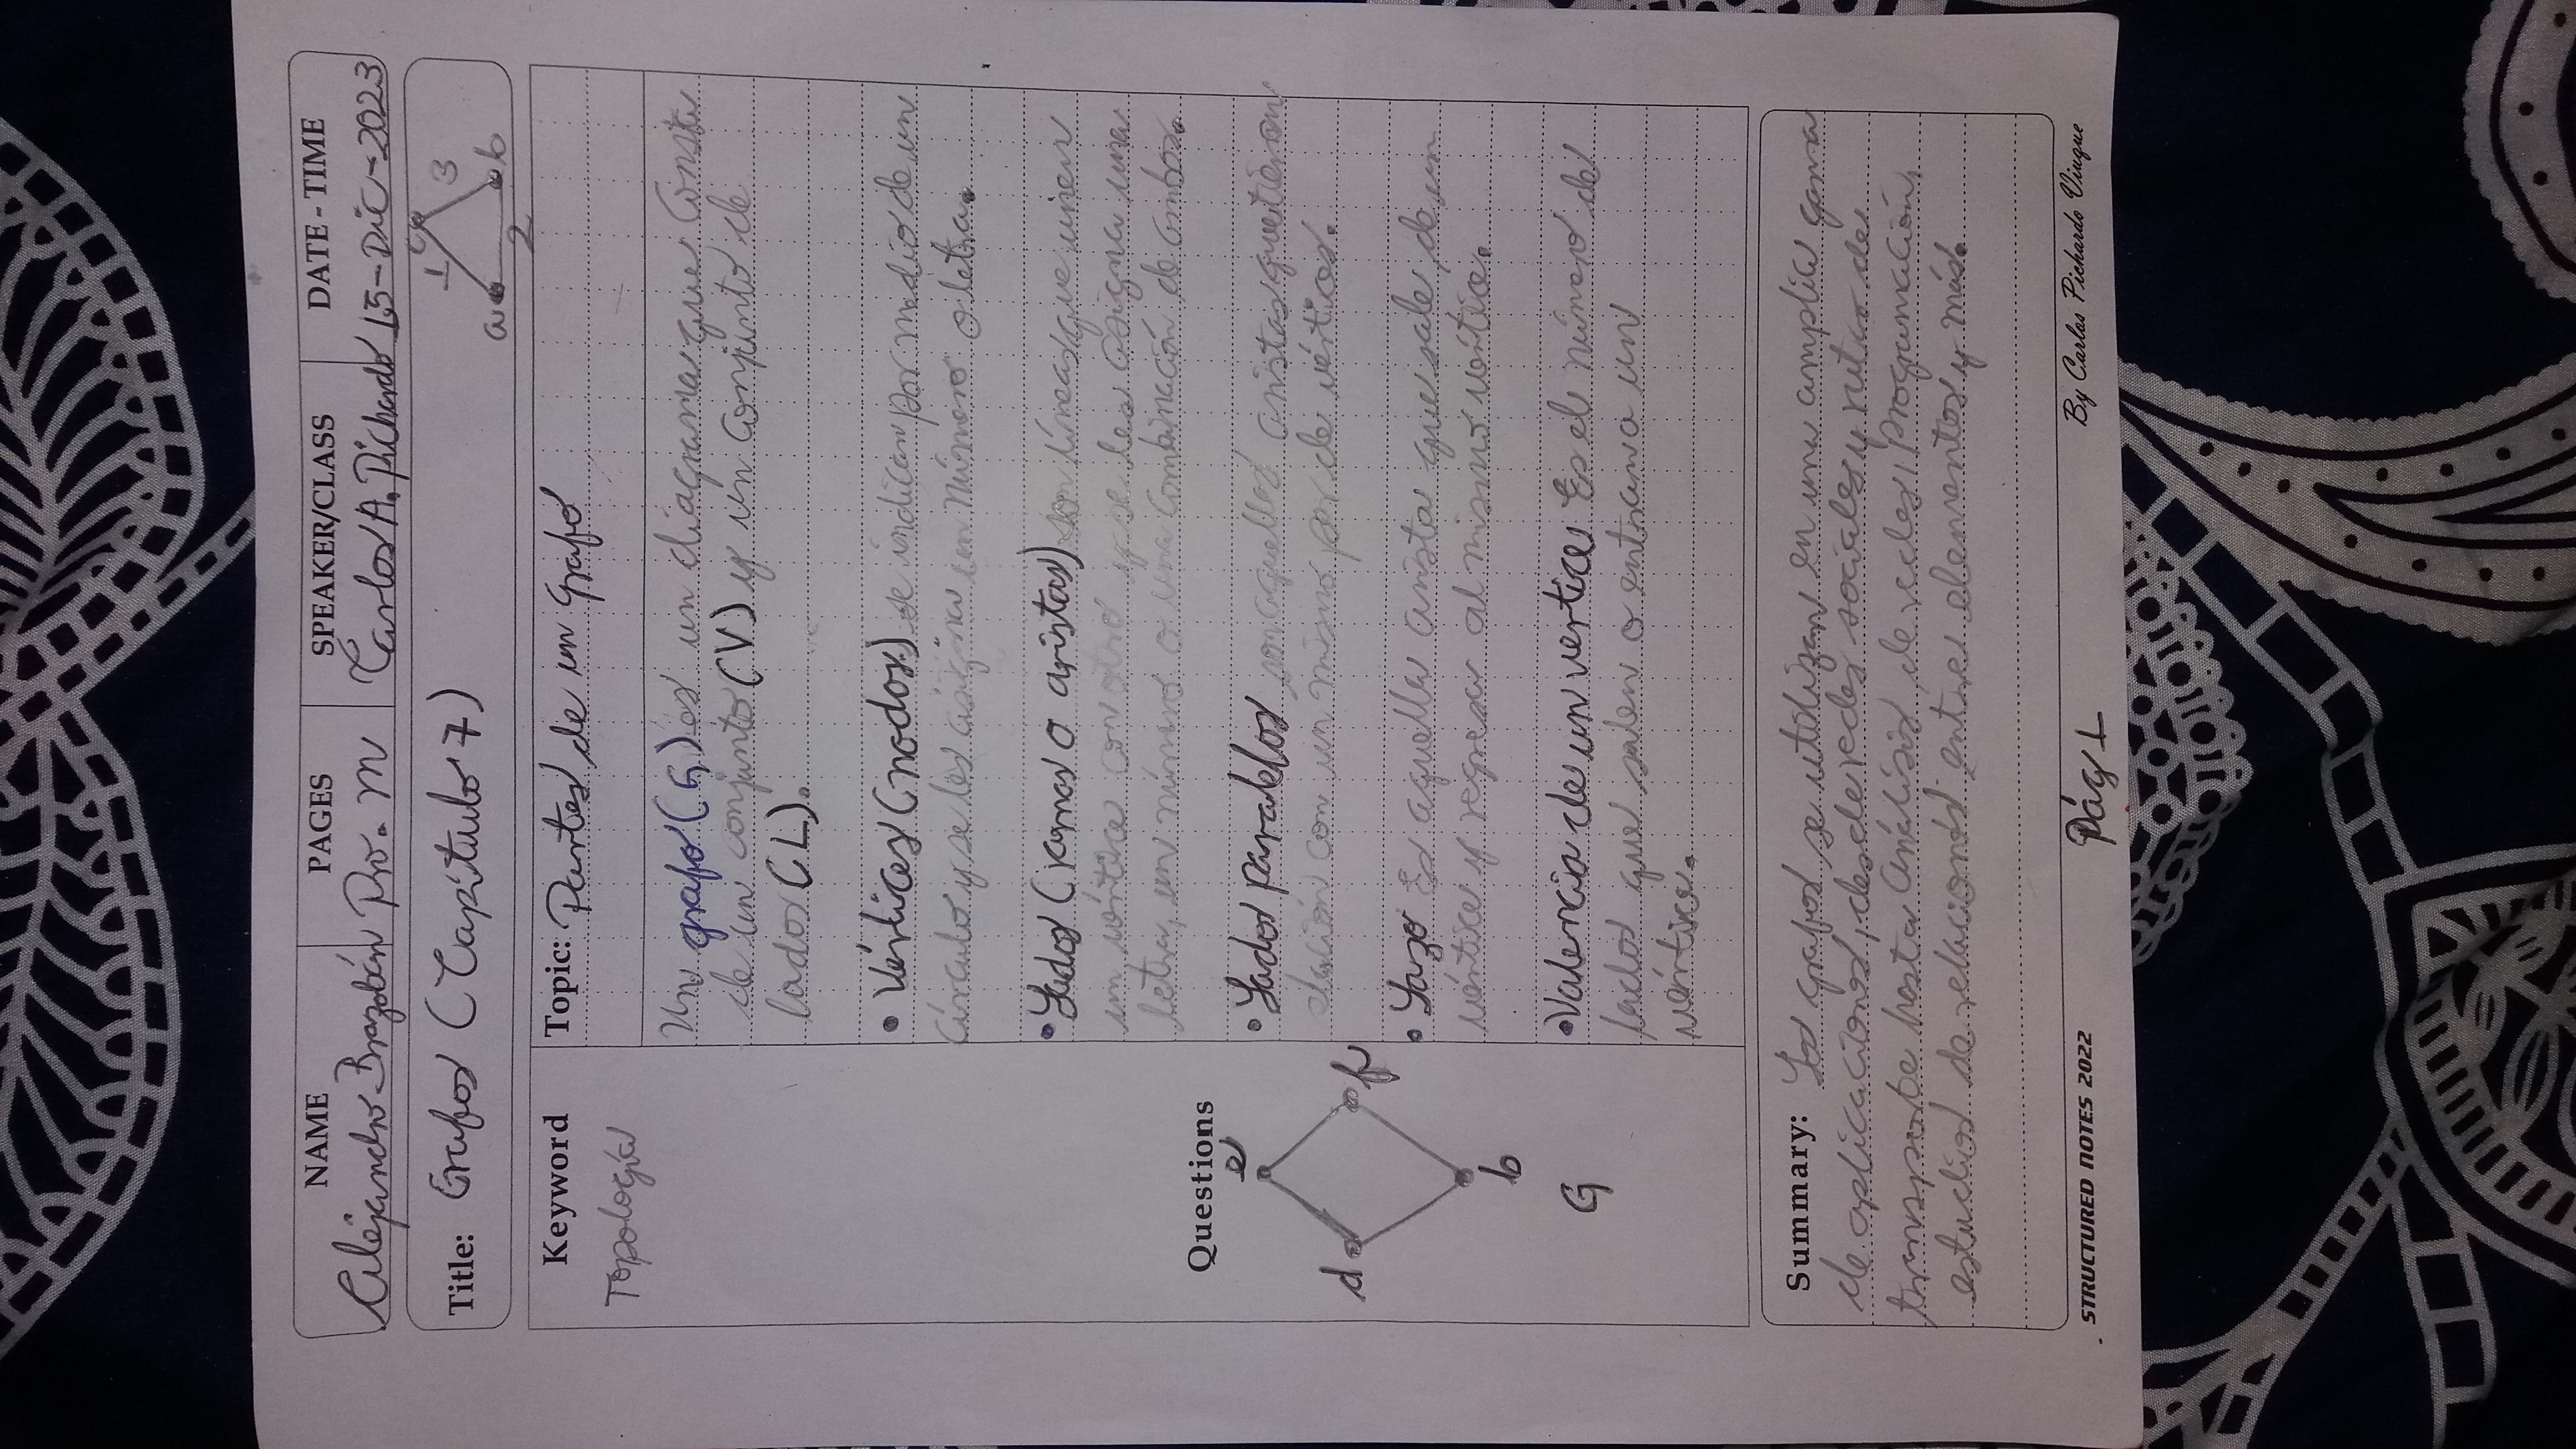 NAME PAGES SPEAKER/CLASS DATE-TIME
Alejandro Brazobán Pro. M Carlos A. Pichardo 15-Dic-2023
Title: Grafos (Capítulo 7)
c
1 3
a b
2
Keyword
Topología
Topic: Partes de un Grafo
Un grafo (G) es un diagrama que Consta
de un conjunto (V) y un Conjunto de
lados (L).
• Vértices (nodos) se indican por medio de un
Círculo y se les asigna un número o letra.
• Lados (ramas o aristas) son líneas que unen
un vértice con otro y se les asigna una
letra, un número o una Combinación de ambos.
Questions
e
d f
b
G
• Lados paralelos son aquellas aristas que tienen
relación con un mismo par de vértices.
• Lazo Es aquella arista que sale de un
vértice y regresa al mismo vértice.
• Valencia de un vertice Es el número de
lados que salen o entran a un
vértice.
Summary: Los grafos se utilizan en una amplia gama
de aplicaciones, desde redes sociales y rutas de
transporte hasta Análisis de redes, Programación,
estudios de relaciones entre elementos y más.
STRUCTURED NOTES 2022 Pág 1 By Carlos Pichardo Viuque